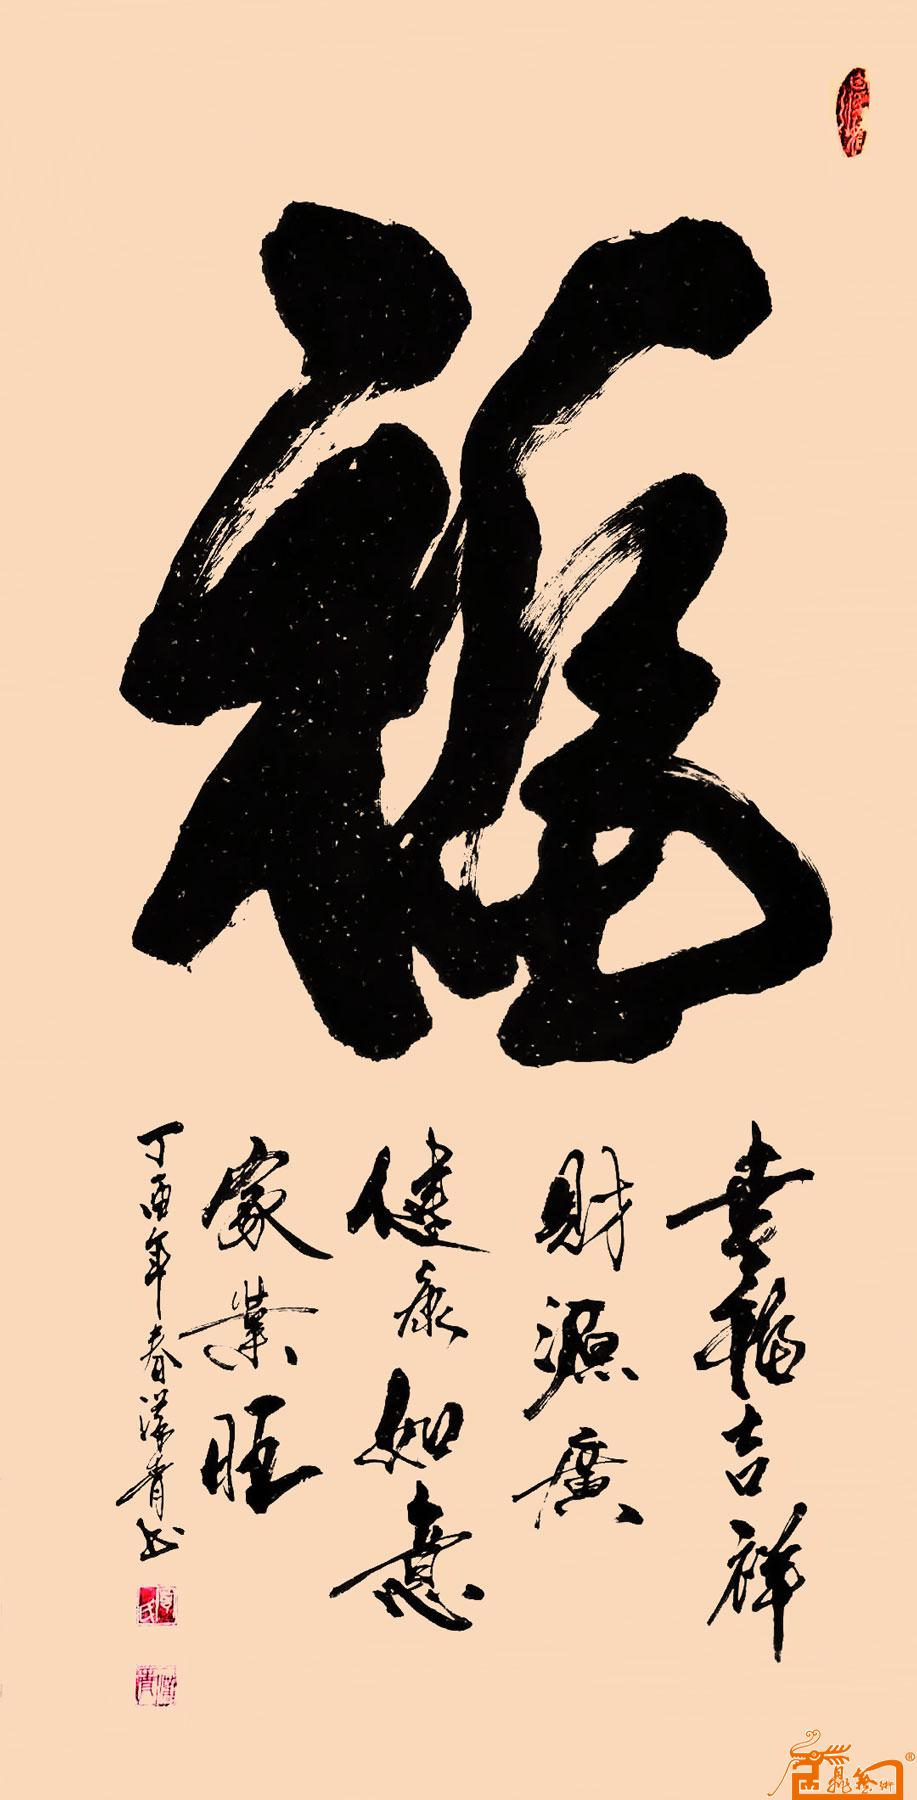 福
幸福吉祥
財源廣
健康如意
家業旺
丁酉年春漢青书